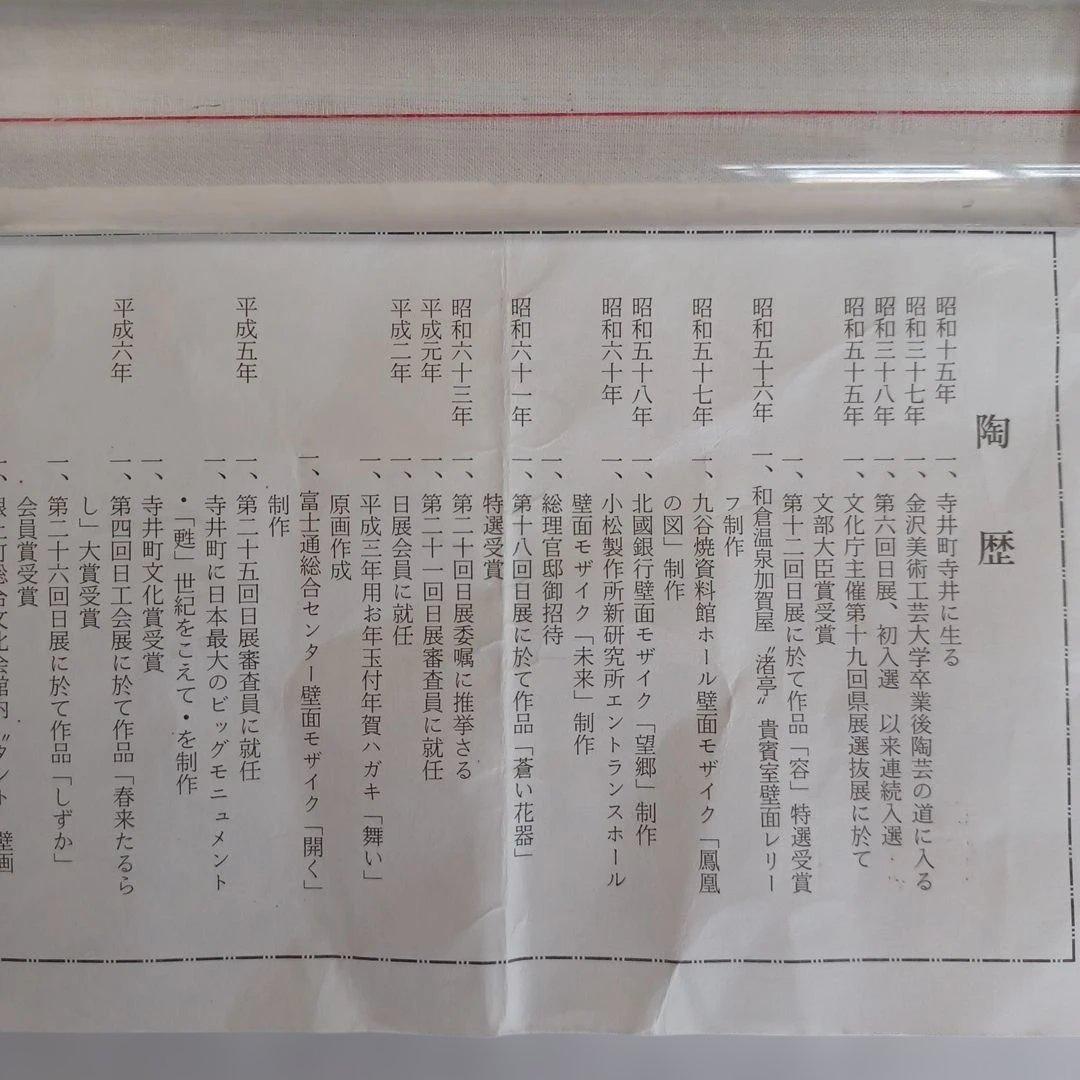 陶歴
昭和十五年 一、寺井町寺井に生る
昭和三十七年 一、金沢美術工芸大学卒業後陶芸の道に入る
昭和三十八年 一、第六回日展、初入選 以来連続入選
昭和五十五年 一、文化庁主催第十九回県展選抜展に於て
文部大臣賞受賞
一、第十二回日展に於て作品「容」特選受賞
昭和五十六年 一、和倉温泉加賀屋〝渚亭〟貴賓室壁面レリー
フ制作
昭和五十七年 一、九谷焼資料館ホール壁面モザイク「鳳凰
の図」制作
昭和五十八年 一、北國銀行壁面モザイク「望郷」制作
昭和六十年 一、小松製作所新研究所エントランスホール
壁面モザイク「未来」制作
一、総理官邸御招待
昭和六十一年 一、第十八回日展に於て作品「蒼い花器」
特選受賞
昭和六十三年 一、第二十回日展委嘱に推挙さる
平成元年 一、第二十一回日展審査員に就任
平成二年 一、日展会員に就任
一、平成三年用お年玉付年賀ハガキ「舞い」
原画作成
一、富士通総合センター壁面モザイク「開く」
制作
平成五年 一、第二十五回日展審査員に就任
一、寺井町に日本最大のビッグモニュメント
・「甦」世紀をこえて・を制作
一、寺井町文化賞受賞
平成六年 一、第四回日工会展に於て作品「春来たるら
し」大賞受賞
一、第二十六回日展に於て作品「しずか」
会員賞受賞